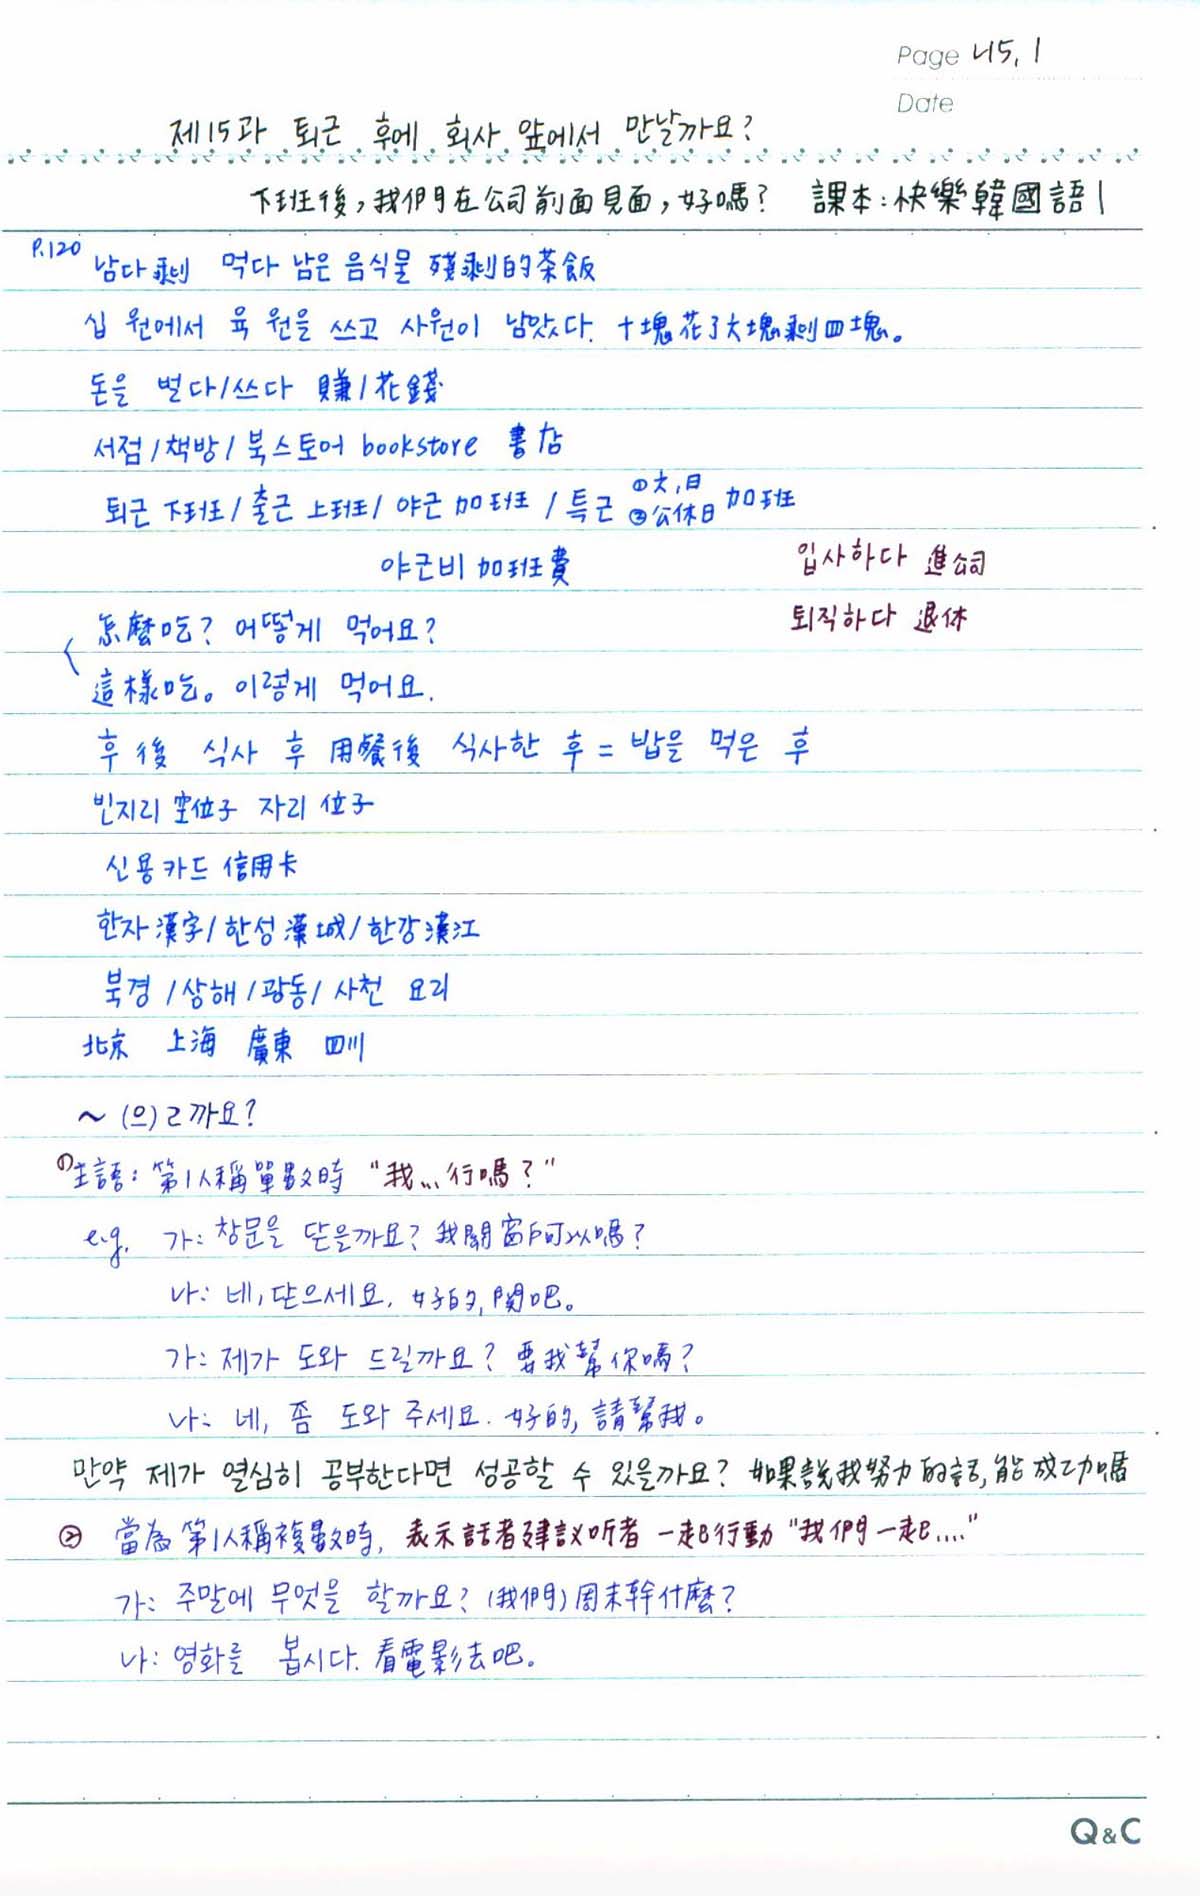 Page 니5, 1
Date
제15과 퇴근 후에 회사 앞에서 만날까요?
下班後，我們在公司前面見面，好嗎？ 課本：快樂韓國語1
P.120
남다 剩 먹다 남은 음식물 殘剩的茶飯
십 원에서 육 원을 쓰고 사원이 남았다. 十塊花了六塊剩四塊。
돈을 벌다/쓰다 賺/花錢
서점/책방/북스토어 bookstore 書店
퇴근 下班/출근 上班/야근 加班/특근 ①六,日 ②公休日 加班
야근비 加班費 입사하다 進公司
怎麼吃？어떻게 먹어요? 퇴직하다 退休
這樣吃。이렇게 먹어요.
후 後 식사 후 用餐後 식사한 후 = 밥을 먹은 후
빈지리 空位子 자리 位子
신용카드 信用卡
한자 漢字/한성 漢城/한강 漢江
북경/상해/광동/사천 요리
北京 上海 廣東 四川
~(으)ㄹ까요?
① 主語：第1人稱單數時 "我...行嗎？"
e.g. 가: 창문을 닫을까요? 我關窗戶可以嗎？
나: 네, 닫으세요. 好的,關吧。
가: 제가 도와 드릴까요? 要我幫你嗎？
나: 네, 좀 도와 주세요. 好的,請幫我。
만약 제가 열심히 공부한다면 성공할 수 있을까요? 如果說我努力的話,能成功嗎
② 當為第1人稱複數時, 表示話者建議听者一起行動 "我們一起...."
가: 주말에 무엇을 할까요? (我們)周末幹什麼？
나: 영화를 봅시다. 看電影去吧。
Q&C